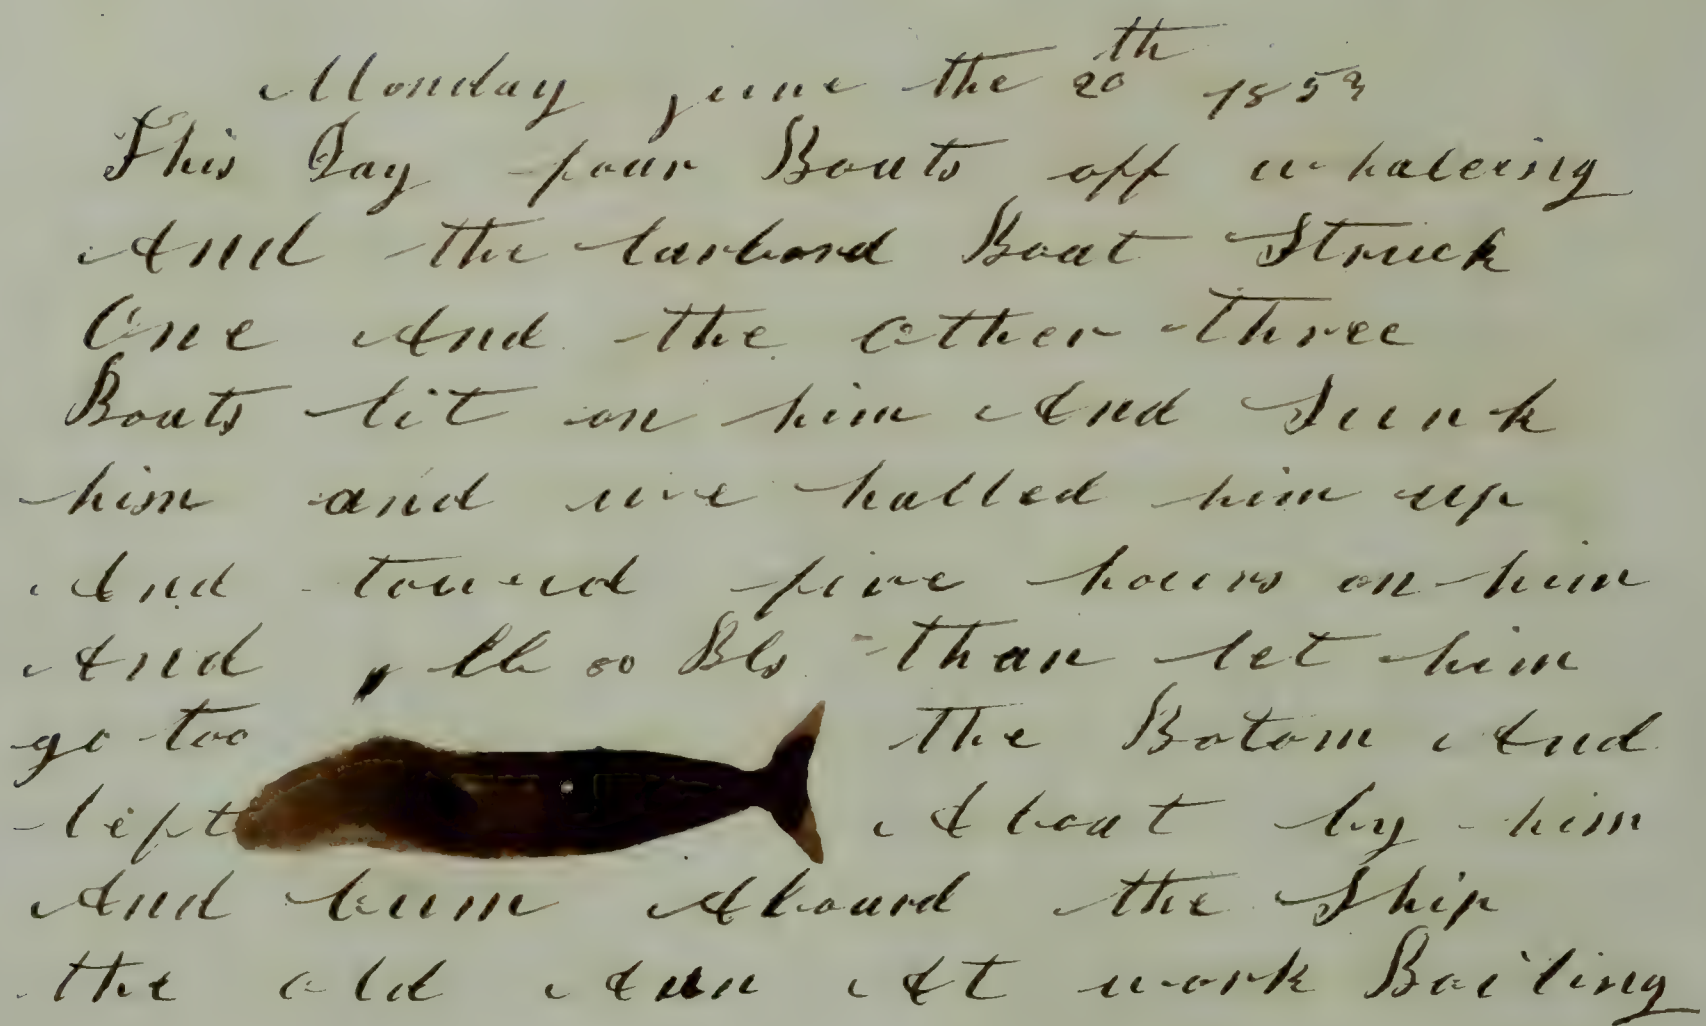 Monday june the 20th 1853
This Day four Boats off whaleing
And the larbord Boat Struck
One And the other three
Boats lit on him And Sunk
him and we halled him up
And towed five hours on him
And 80 Bls than let him
go too the Botom And
left A boat by him
And Cum Aboard the Ship
the old Ann At work Boiling